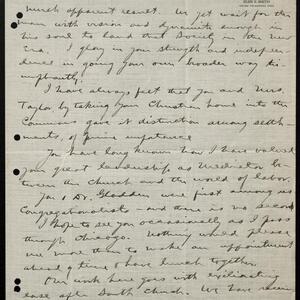 much apparent result. We yet wait for the
man with vision and dynamite enough in
his soul to hand that Society in the New
Era. I glory in your strength and indepen-
dence in going your own broader way tri-
umphantly.
I have always felt that you and Mrs.
Taylor by taking your Christian home into the
Commons gave it distinction among settle-
ments, of prime importance.
You have long known how I have valued
your great leadership as Mediator be-
tween the Church and the world of labor.
You & Dr. Gladden were first among us
Congregationalists - and there is no second
I hope to see you occasionally as I pass
through Chicago. Nothing would please
me more than to make an appointment
ahead of time & have lunch together.
Our work here goes with exhilarating
ease after South Church. We have